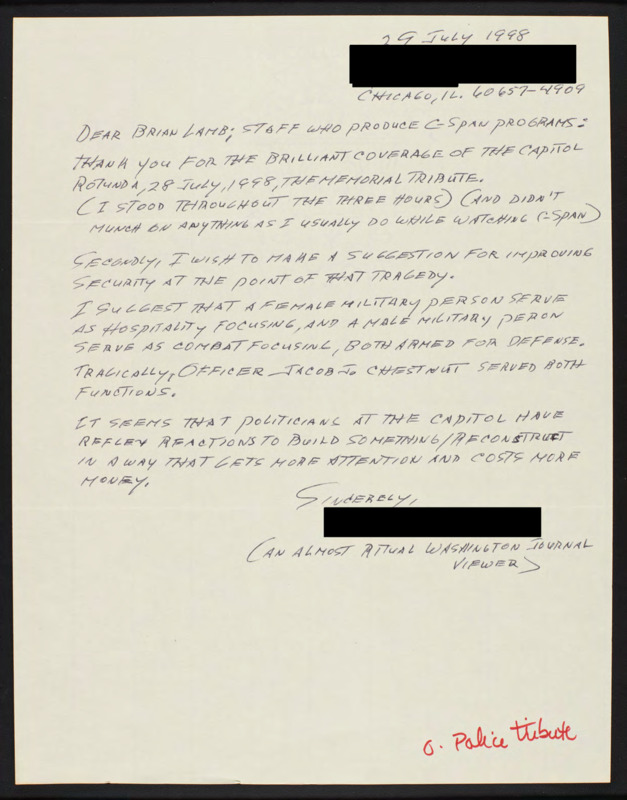 29 July 1998
CHICAGO, IL. 60657-4909
DEAR BRIAN LAMB; STAFF WHO PRODUCE C-SPAN PROGRAMS:
THANK YOU FOR THE BRILLIANT COVERAGE OF THE CAPITOL
ROTUNDA, 28 JULY, 1998, THE MEMORIAL TRIBUTE.
(I STOOD THROUGHOUT THE THREE HOURS) (AND DIDN'T
MUNCH ON ANYTHING AS I USUALLY DO WHILE WATCHING C-SPAN)
SECONDLY, I WISH TO MAKE A SUGGESTION FOR IMPROVING
SECURITY AT THE POINT OF THAT TRAGEDY.
I SUGGEST THAT A FEMALE MILITARY PERSON SERVE
AS HOSPITALITY FOCUSING, AND A MALE MILITARY PERON
SERVE AS COMBAT FOCUSING, BOTH ARMED FOR DEFENSE.
TRAGICALLY, OFFICER JACOB J. CHESTNUT SERVED BOTH
FUNCTIONS.
IT SEEMS THAT POLITICIANS AT THE CAPITOL HAVE
REFLEX REACTIONS TO BUILD SOMETHING/RECONSTRUCT
IN A WAY THAT GETS MORE ATTENTION AND COSTS MORE
MONEY.
SINCERELY,
(AN ALMOST RITUAL WASHINGTON JOURNAL
VIEWER)
O. Police tribute